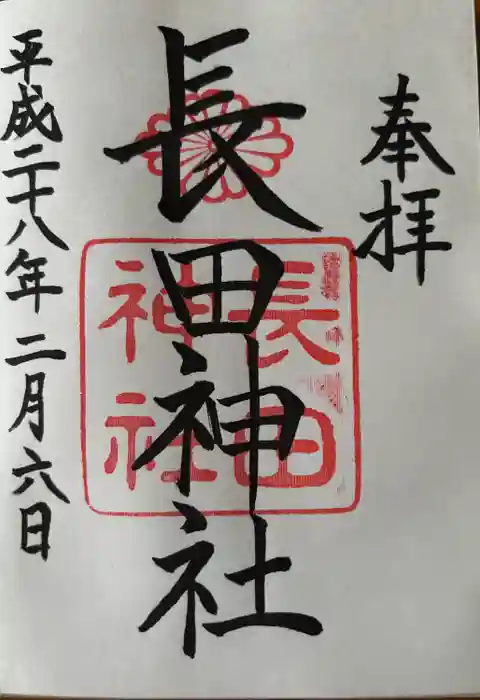 奉拝
長田神社
長田
神社
平成二十八年二月六日